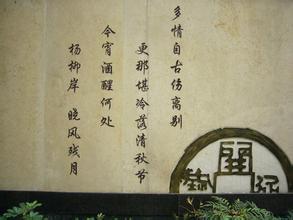 多情自古伤离别
更那堪冷落清秋节
今宵酒醒何处
杨柳岸 晓风残月